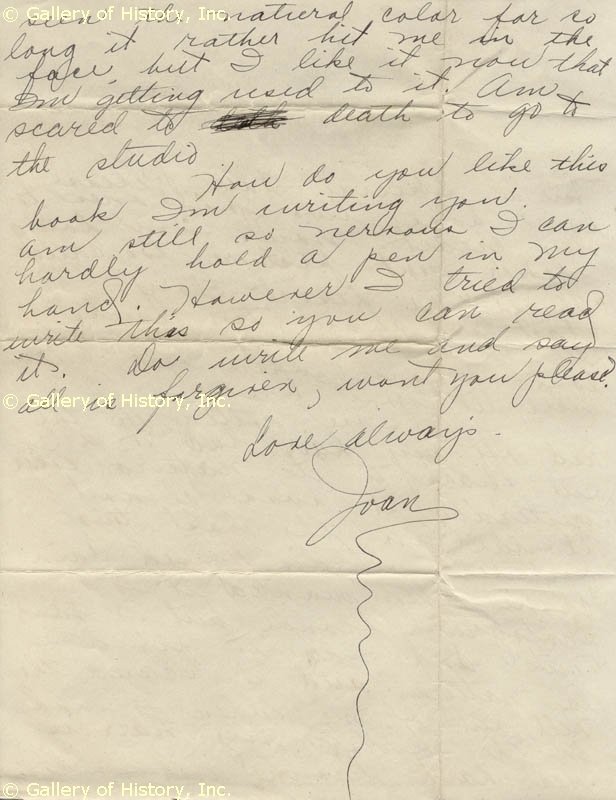 © Gallery of History, Inc.
seen the natural color for so
long it rather hit me in the
face, but I like it now that
I'm getting used to it. Am
scared to death to go to
the studio
How do you like this
book I'm writing you.
am still so nervous I can
hardly hold a pen in my
hand. However I tried to
write this so you can read
it. Do write me and say
all is forgiven, wont you please.
© Gallery of History, Inc.
© Gallery of History, Inc.
Love always.
Joan
© Gallery of History, Inc.
© Gallery of History, Inc.